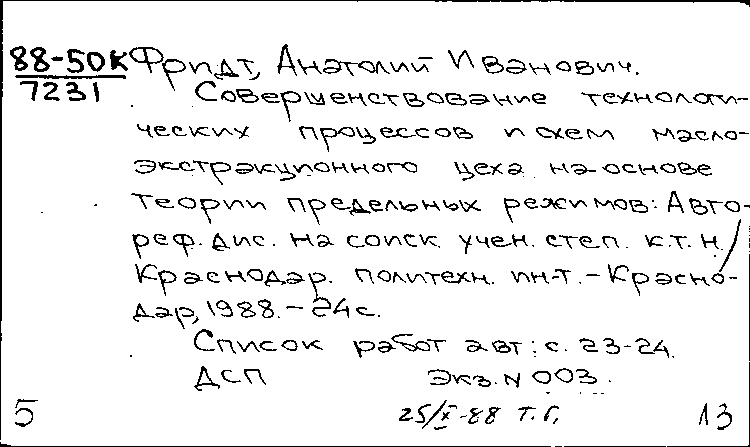 88-50К Фридт, Анатолий Иванович.
7231
Совершенствование технологи-
ческих процессов и схем масло-
экстракционного цеха на основе
теории предельных режимов: Авто-
реф. дис. на соиск. учен. степ. к.т.н./
Краснодар. политехн. ин-т. - Красно-
дар, 1988. - 24 с.
Список работ авт: с. 23-24.
ДСП Экз. N 003.
5 25/X-88 Т.Г. 13